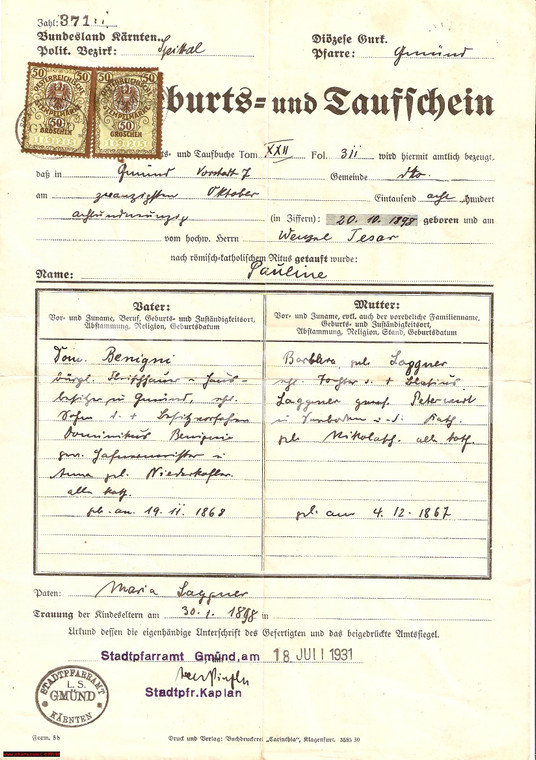 Zahl: 371
Bundesland Kärnten.
Polit. Bezirk: Spittal
Diözese Gurk.
Pfarre: Gmünd
50 50
ÖSTERREICHISCHE
STEMPELMARKE
50
GROSCHEN
50 50
ÖSTERREICHISCHE
STEMPELMARKE
50
GROSCHEN
burts= und Taufschein
und Taufbuche Tom XXII Fol. 311 wird hiermit amtlich bezeugt,
daß in Gmünd Vorstadt 7 Gemeinde dto.
am zwanzigsten Oktober Eintausend acht Hundert
achtundneunzig (in Ziffern): 20. 10. 1898 geboren und am
vom hochw. Herrn Wenzel Tesar
nach römisch-katholischem Ritus getauft wurde:
Name: Pauline
Vater:
Vor- und Zuname, Beruf, Geburts- und Zuständigkeitsort,
Abstammung, Religion, Geburtsdatum
Dom. Benigni
bürgl. Fleischhauer u. Haus-
besitzer in Gmünd, ehl.
Sohn d. +
Dominikus Benigni
gew. Hafnermeister u
Anna geb. Niederkofler.
alle kath.
geb. am 19. 11. 1868
Mutter:
Vor- und Zuname, evtl. auch der voreheliche Familienname,
Geburts- und Zuständigkeitsort,
Abstammung, Religion, Stand, Geburtsdatum
Barbara, geb. Laggner
ehl. Tochter d. + Blasius
Laggner gewes.
in u. d. Kath.
geb. Nikolasch. alle kath.
geb. am 4. 12. 1867
Paten: Maria Laggner
Trauung der Kindeseltern am 30. 1. 1898 in
Urkund dessen die eigenhändige Unterschrift des Gefertigten und das beigedrückte Amtssiegel.
Stadtpfarramt Gmünd, am 18 JULI 1931
Stadtpfr. Kaplan
STADTPFARRAMT
L. S.
GMÜND
KÄRNTEN
Form. 5b
Druck und Verlag: Buchdruckerei „Carinthia“, Klagenfurt. 3585 30